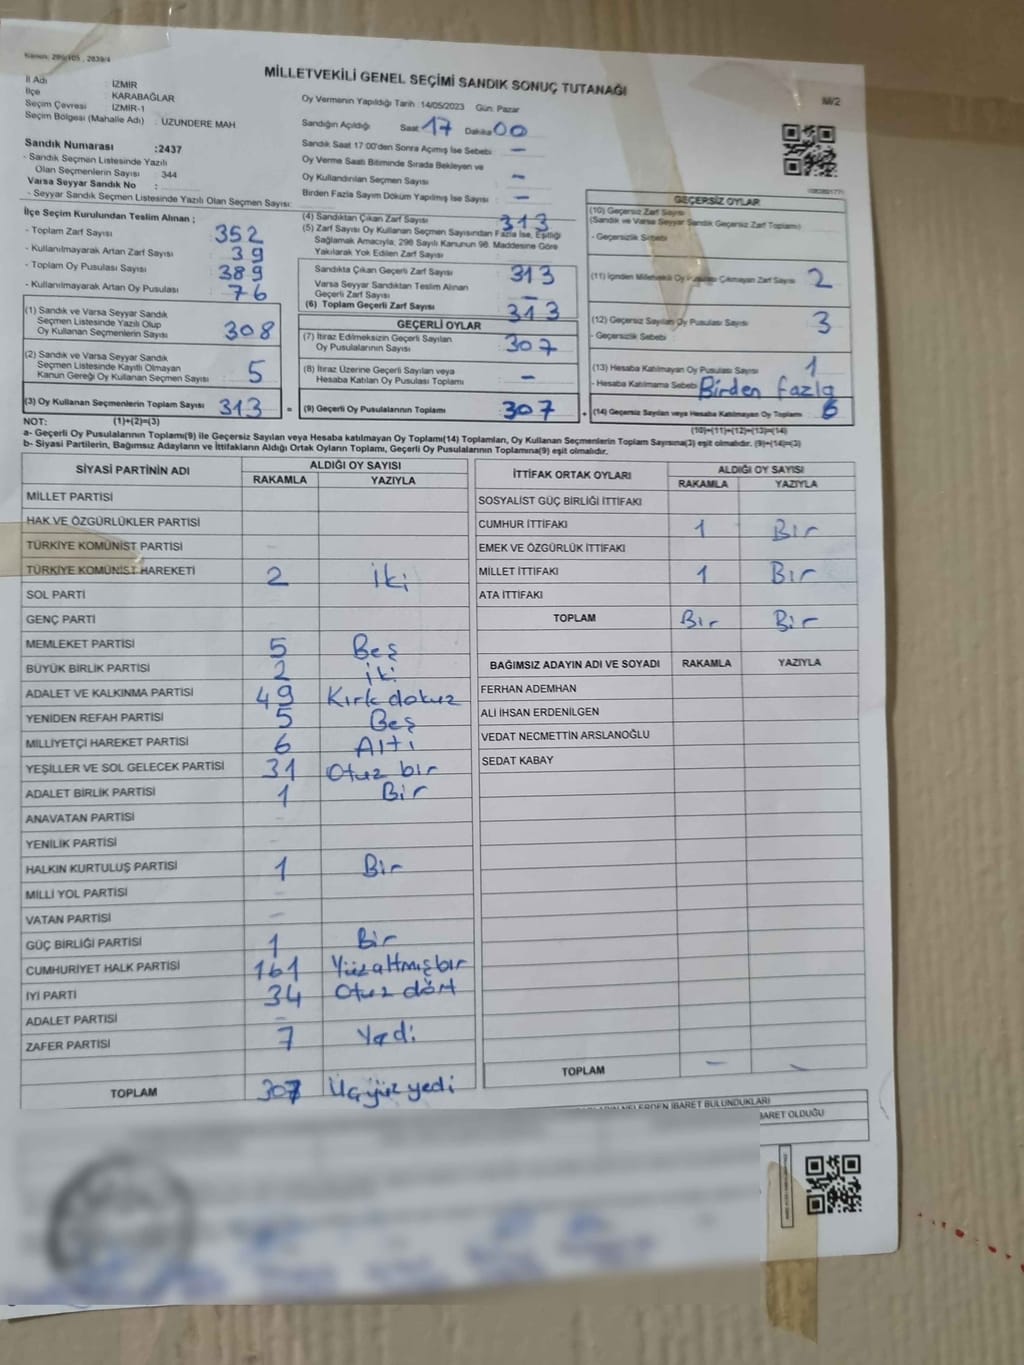 Kanun: 298/105 , 2839/4
MİLLETVEKİLİ GENEL SEÇİMİ SANDIK SONUÇ TUTANAĞI
İl Adı : İZMİR
İlçe : KARABAĞLAR
Seçim Çevresi : İZMİR-1
Seçim Bölgesi (Mahalle Adı) : UZUNDERE MAH
Sandık Numarası :2437
- Sandık Seçmen Listesinde Yazılı
Olan Seçmenlerin Sayısı : 344
Varsa Seyyar Sandık No :
- Seyyar Sandık Seçmen Listesinde Yazılı Olan Seçmen Sayısı:
Oy Vermenin Yapıldığı Tarih :14/05/2023 Gün: Pazar
Sandığın Açıldığı Saat 17 Dakika 00
Sandık Saat 17:00'den Sonra Açımış İse Sebebi: -
Oy Verme Saati Bitiminde Sırada Bekleyen ve
Oy Kullandırılan Seçmen Sayısı -
Birden Fazla Sayım Döküm Yapılmış İse Sayısı : -
M/2
İlçe Seçim Kurulundan Teslim Alınan ;
- Toplam Zarf Sayısı : 352
- Kullanılmayarak Artan Zarf Sayısı : 39
- Toplam Oy Pusulası Sayısı : 389
- Kullanılmayarak Artan Oy Pusulası : 76
(1) Sandık ve Varsa Seyyar Sandık
Seçmen Listesinde Yazılı Olup
Oy Kullanan Seçmenlerin Sayısı 308
(2) Sandık ve Varsa Seyyar Sandık
Seçmen Listesinde Kayıtlı Olmayan
Kanun Gereği Oy Kullanan Seçmen Sayısı 5
(3) Oy Kullanan Seçmenlerin Toplam Sayısı 313 =
(4) Sandıktan Çıkan Zarf Sayısı 313
(5) Zarf Sayısı Oy Kullanan Seçmen Sayısından Fazla İse, Eşitliği
Sağlamak Amacıyla, 298 Sayılı Kanunun 98. Maddesine Göre
Yakılarak Yok Edilen Zarf Sayısı
Sandıkta Çıkan Geçerli Zarf Sayısı 313
Varsa Seyyar Sandıktan Teslim Alınan
Geçerli Zarf Sayısı -
(6) Toplam Geçerli Zarf Sayısı 313
GEÇERLİ OYLAR
(7) İtiraz Edilmeksizin Geçerli Sayılan
Oy Pusulalarının Sayısı 307
(8) İtiraz Üzerine Geçerli Sayılan veya
Hesaba Katılan Oy Pusulası Toplamı -
(9) Geçerli Oy Pusulalarının Toplamı 307 +
GEÇERSİZ OYLAR
(10) Geçersiz Zarf Sayısı
(Sandık ve Varsa Seyyar Sandık Geçersiz Zarf Toplamı)
- Geçersizlik Sebebi :
(11) İçinden Milletvekili Oy Pusulası Çıkmayan Zarf Sayısı 2
(12) Geçersiz Sayılan Oy Pusulası Sayısı 3
- Geçersizlik Sebebi :
(13) Hesaba Katılmayan Oy Pusulası Sayısı 1
- Hesaba Katılmama Sebebi : Birden fazla
(14) Geçersiz Sayılan veya Hesaba Katılmayan Oy Toplamı 6
NOT: (1)+(2)=(3) (10)+(11)+(12)+(13)=(14)
a- Geçerli Oy Pusulalarının Toplamı(9) ile Geçersiz Sayılan veya Hesaba katılmayan Oy Toplamı(14) Toplamları, Oy Kullanan Seçmenlerin Toplam Sayısına(3) eşit olmalıdır. (9)+(14)=(3)
b- Siyasi Partilerin, Bağımsız Adayların ve İttifakların Aldığı Ortak Oyların Toplamı, Geçerli Oy Pusulalarının Toplamına(9) eşit olmalıdır.
SİYASİ PARTİNİN ADI ALDIĞI OY SAYISI
RAKAMLA YAZIYLA
MİLLET PARTİSİ
HAK VE ÖZGÜRLÜKLER PARTİSİ
TÜRKİYE KOMÜNİST PARTİSİ -
TÜRKİYE KOMÜNİST HAREKETİ 2 iki
SOL PARTİ
GENÇ PARTİ
MEMLEKET PARTİSİ 5 Beş
BÜYÜK BİRLİK PARTİSİ 2 iki
ADALET VE KALKINMA PARTİSİ 49 Kırk dokuz
YENİDEN REFAH PARTİSİ 5 Beş
MİLLİYETÇİ HAREKET PARTİSİ 6 Altı
YEŞİLLER VE SOL GELECEK PARTİSİ 31 Otuz bir
ADALET BİRLİK PARTİSİ 1 Bir
ANAVATAN PARTİSİ -
YENİLİK PARTİSİ -
HALKIN KURTULUŞ PARTİSİ 1 Bir
MİLLİ YOL PARTİSİ -
VATAN PARTİSİ -
GÜÇ BİRLİĞİ PARTİSİ 1 Bir
CUMHURİYET HALK PARTİSİ 161 Yüzaltmışbir
İYİ PARTİ 34 Otuz dört
ADALET PARTİSİ -
ZAFER PARTİSİ 7 Yedi
TOPLAM 307 Üçyüz yedi
İTTİFAK ORTAK OYLARI ALDIĞI OY SAYISI
RAKAMLA YAZIYLA
SOSYALİST GÜÇ BİRLİĞİ İTTİFAKI
CUMHUR İTTİFAKI 1 Bir
EMEK VE ÖZGÜRLÜK İTTİFAKI
MİLLET İTTİFAKI 1 Bir
ATA İTTİFAKI
TOPLAM Bir Bir
BAĞIMSIZ ADAYIN ADI VE SOYADI RAKAMLA YAZIYLA
FERHAN ADEMHAN
ALİ İHSAN ERDENİLGEN
VEDAT NECMETTİN ARSLANOĞLU
SEDAT KABAY
TOPLAM - -
NELERDEN İBARET BULUNDUKLARI
İBARET OLDUĞU